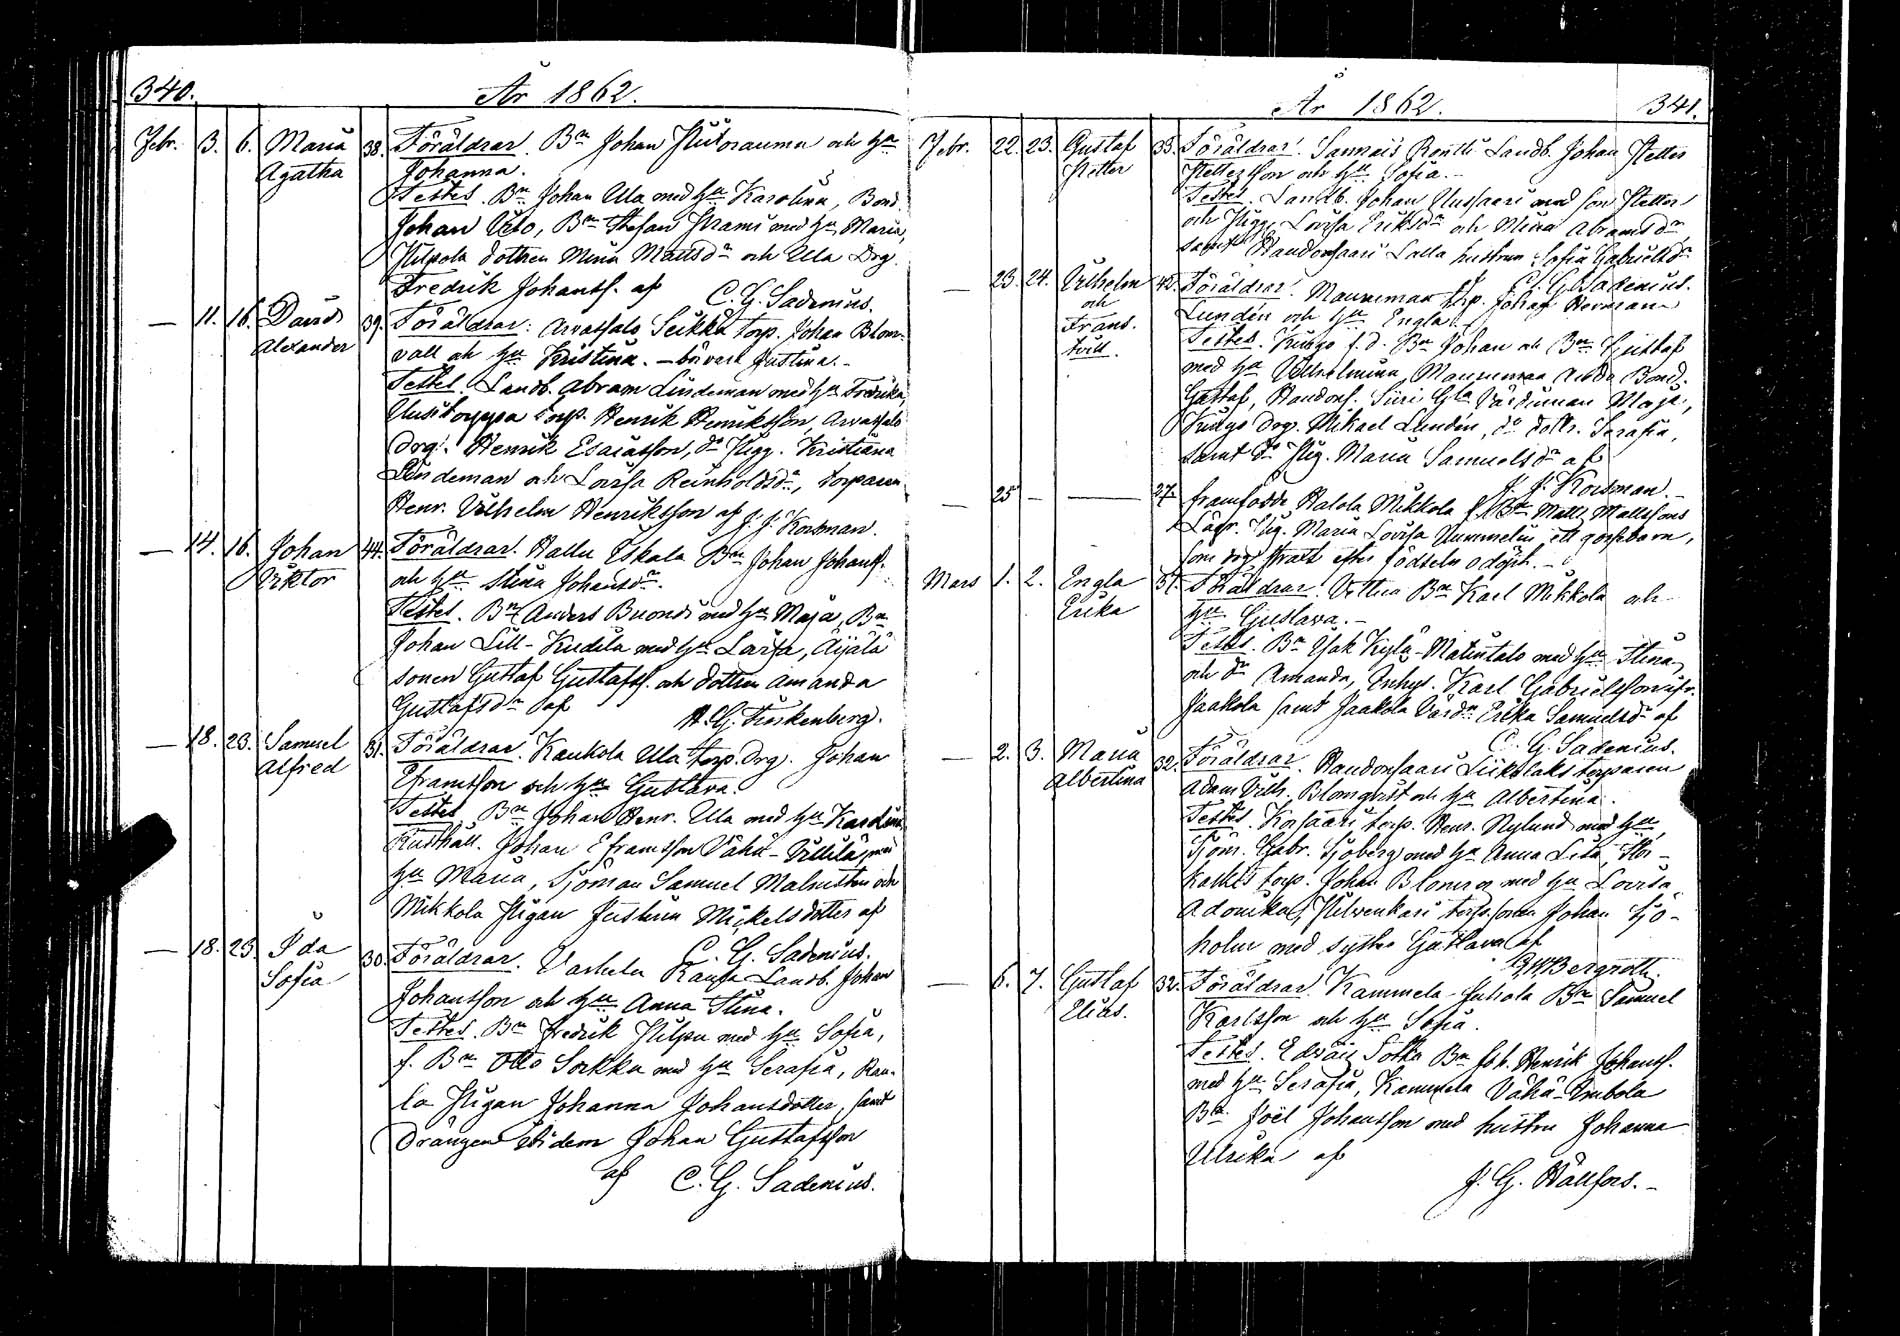 340.
År 1862.
Febr. 3. 6. Maria Agatha 38. Föräldrar. Bn Johan och Hu
Johanna.
Testes. Bn Johan Ula med Hu Karolina, Bond.
Johan Uto, Bn Stefan med Hu Maria,
Hilpola dottren Mina Mattsdr och Ula Drg.
Fredrik Johanss. af C. G. Sadenius.
— 11. 16. David Alexander 39. Föräldrar: Arvassalo Seikka torp. Johan Blom-
vall och Hu Kristina.
Testes. Landb. Abram Lindeman med Hu Fredrika,
Uusitorppa torp. Henrik Henriksson, Arvassalo
Drg. Henrik Esaiasson, do Pig. Kristiana
Lindeman och Lovisa Reinholdsdr, torparen
Henr. Vilhelm Henriksson af J. J. Korsman.
— 14. 16. Johan Viktor 44. Föräldrar. Hallu Eskola Bn Johan Johanss.
och Hu Stina Johansdr.
Testes. Bn Anders Buondi med Hu Maja, Bn
Johan Lill-Kudila med Hu Lovisa, Äijälä
sonen Gustaf Gustafss. och dottren Amanda
Gustafsdr af
— 18. 23. Samuel Alfred 31. Föräldrar. Kaukola Ula torp. Drg. Johan
Eframsson och Hu Gustava.
Testes. Bn Johan Henr. Ula med Hu Karolina
Rusthåll. Johan Eframsson Vähä-Villilä med
Hu Maria, Sjöman Samuel Malmsten och
Mikkola Pigan Justina Mickelsdotter af
C. G. Sadenius.
— 18. 23. Ida Sofia 30. Föräldrar. Varhela Landb. Johan
Johansson och Hu Anna Stina.
Testes. Bn Fredrik Hilpu med Hu Sofia,
f. Bn Otto Sorkka med Hu Serafia, Rau-
la Pigan Johanna Johansdotter, samt
Drängen ibidem Johan Gustafsson
af C. G. Sadenius.
År 1862.
341.
Febr. 22. 23. Gustaf Petter 33. Föräldrar. Sannais Rontti Landb. Johan Petter
Pettersson och Hu Sofia.
Testes. Landb. Johan Uusisaari med son Petter
och Pig. Lovisa Eriksdr och Mina Abramsdr
samt Haudonsaari Lalla hustrun Sofia Gabrielsdr
af C. G. Sadenius.
— 23. 24. Vilhelm och Frans. tvill. 42. Föräldrar. Maunuman torp. Johan Herman
Lundin och Hu Engla.
Testes. Kurgo f. d. Bn Johan och Bn Gustaf
med Hu Vilhelmina, Maunumaa Bond.
Gustaf, Haudons. Siiri Maja,
Kurgo Drg. Mikael Lundin, do dottr. Serafia,
samt do Pig. Maria Samuelsdr af
J. J. Korsman.
— 25 — — 27. framfödde Halola Mikkola Bn Matts Mattssons
Pig. Maria Lovisa Nummelin ett gossebarn,
som dog strax efter födseln odöpt.
Mars 1. 2. Engla Erika 37. Föräldrar. Bn Karl Mikkola och
Hu Gustava.
Testes. Bn Isak Kylä-Mattitalo med Hu Stina
och dr Amanda, Inhys. Karl Gabrielsson ifr.
Jaakola samt Jaakola Värdn Erika Samuelsdr af
C. G. Sadenius.
— 2. 3. Maria Albertina 32. Föräldrar. Haudonsaari torparen
Adam Vilh. Blomqvist och Hu Albertina.
Testes. torp. Henr. Nylund med Hu,
Sjöm. Gabr. Sjöberg med Hu Anna Lisa,
torp. Johan Blomros med Hu Lovisa
torp. sonen Johan Sjö-
holm med syster Gustava af
Bergroth.
— 6. 7. Gustaf Elias. 32. Föräldrar. Kammela Juhola Bn Samuel
Karlsson och Hu Sofia.
Testes. Sorkka Bn Joh. Henrik Johanss.
med Hu Serafia, Kammela Vähä-Imbola
Bn Joël Johansson med hustru Johanna
Ulrika af
J. G. Hällfors.